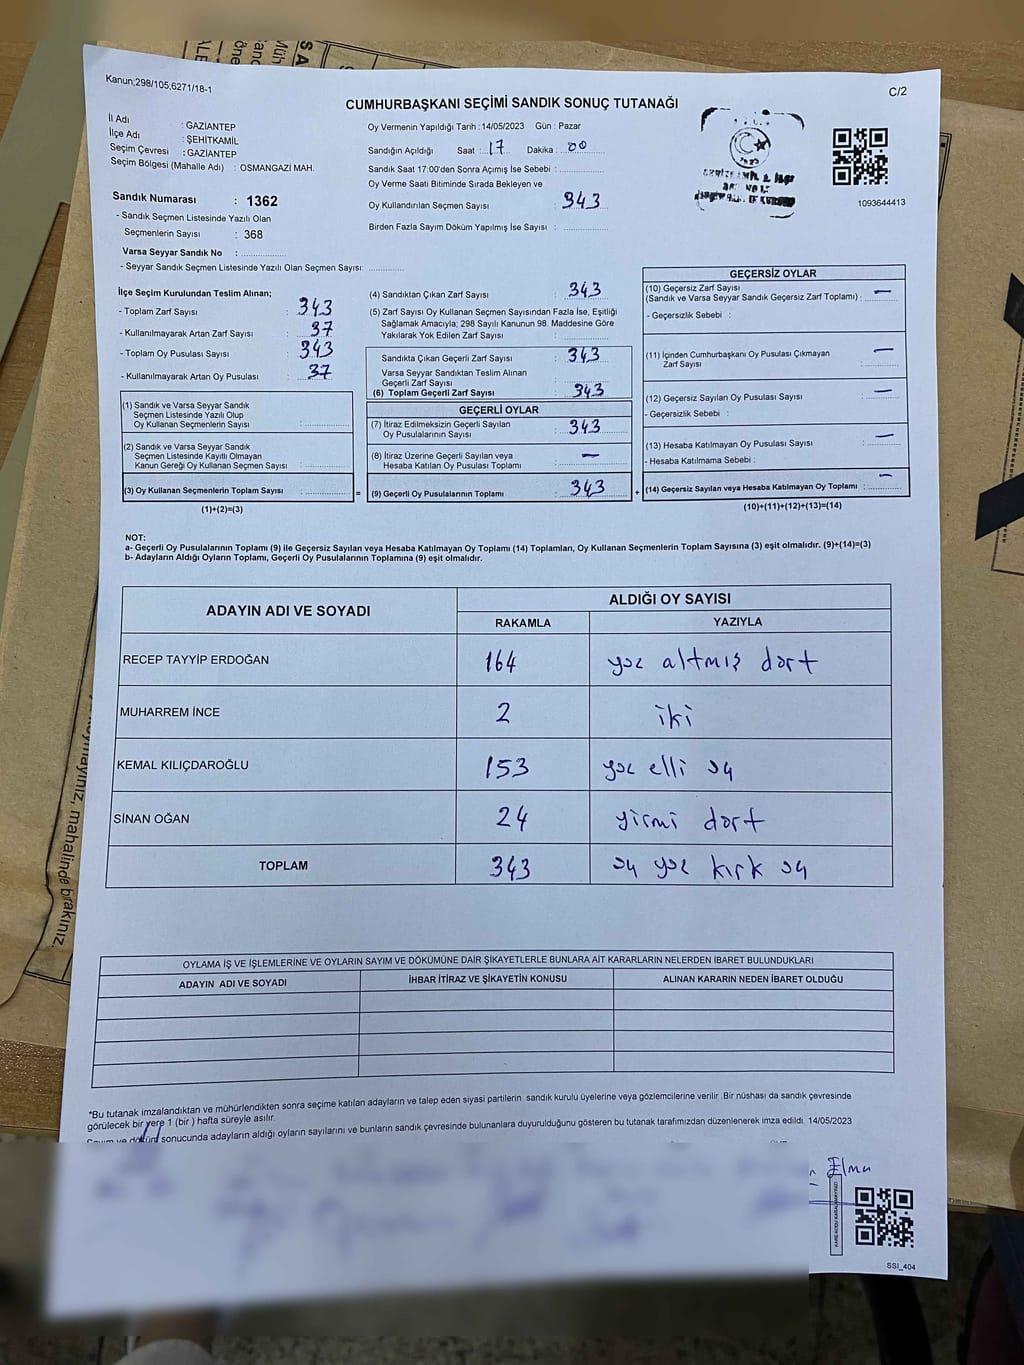 Kanun;298/105,6271/18-1
C/2
CUMHURBAŞKANI SEÇİMİ SANDIK SONUÇ TUTANAĞI
İl Adı : GAZİANTEP
İlçe Adı : ŞEHİTKAMİL
Seçim Çevresi : GAZİANTEP
Seçim Bölgesi (Mahalle Adı) : OSMANGAZİ MAH.
Sandık Numarası : 1362
- Sandık Seçmen Listesinde Yazılı Olan
Seçmenlerin Sayısı : 368
Varsa Seyyar Sandık No :
- Seyyar Sandık Seçmen Listesinde Yazılı Olan Seçmen Sayısı:
Oy Vermenin Yapıldığı Tarih : 14/05/2023 Gün : Pazar
Sandığın Açıldığı Saat : 17 Dakika : 00
Sandık Saat 17:00'den Sonra Açımış İse Sebebi :
Oy Verme Saati Bitiminde Sırada Bekleyen ve
Oy Kullandırılan Seçmen Sayısı : 343
Birden Fazla Sayım Döküm Yapılmış İse Sayısı :
1093644413
İlçe Seçim Kurulundan Teslim Alınan;
- Toplam Zarf Sayısı : 343
- Kullanılmayarak Artan Zarf Sayısı : 37
- Toplam Oy Pusulası Sayısı : 343
- Kullanılmayarak Artan Oy Pusulası : 37
(1) Sandık ve Varsa Seyyar Sandık
Seçmen Listesinde Yazılı Olup
Oy Kullanan Seçmenlerin Sayısı :
(2) Sandık ve Varsa Seyyar Sandık
Seçmen Listesinde Kayıtlı Olmayan
Kanun Gereği Oy Kullanan Seçmen Sayısı :
(3) Oy Kullanan Seçmenlerin Toplam Sayısı : =
(1)+(2)=(3)
(4) Sandıktan Çıkan Zarf Sayısı : 343
(5) Zarf Sayısı Oy Kullanan Seçmen Sayısından Fazla İse, Eşitliği
Sağlamak Amacıyla; 298 Sayılı Kanunun 98. Maddesine Göre
Yakılarak Yok Edilen Zarf Sayısı :
Sandıkta Çıkan Geçerli Zarf Sayısı : 343
Varsa Seyyar Sandıktan Teslim Alınan
Geçerli Zarf Sayısı :
(6) Toplam Geçerli Zarf Sayısı : 343
GEÇERLİ OYLAR
(7) İtiraz Edilmeksizin Geçerli Sayılan
Oy Pusulalarının Sayısı : 343
(8) İtiraz Üzerine Geçerli Sayılan veya
Hesaba Katılan Oy Pusulası Toplamı : —
(9) Geçerli Oy Pusulalarının Toplamı : 343 +
GEÇERSİZ OYLAR
(10) Geçersiz Zarf Sayısı
(Sandık ve Varsa Seyyar Sandık Geçersiz Zarf Toplamı) : —
- Geçersizlik Sebebi :
(11) İçinden Cumhurbaşkanı Oy Pusulası Çıkmayan
Zarf Sayısı : —
(12) Geçersiz Sayılan Oy Pusulası Sayısı : —
- Geçersizlik Sebebi :
(13) Hesaba Katılmayan Oy Pusulası Sayısı : —
- Hesaba Katılmama Sebebi :
(14) Geçersiz Sayılan veya Hesaba Katılmayan Oy Toplamı : —
(10)+(11)+(12)+(13)=(14)
NOT:
a- Geçerli Oy Pusulalarının Toplamı (9) ile Geçersiz Sayılan veya Hesaba Katılmayan Oy Toplamı (14) Toplamları, Oy Kullanan Seçmenlerin Toplam Sayısına (3) eşit olmalıdır. (9)+(14)=(3)
b- Adayların Aldığı Oyların Toplamı, Geçerli Oy Pusulalarının Toplamına (9) eşit olmalıdır.
ADAYIN ADI VE SOYADI ALDIĞI OY SAYISI
RAKAMLA YAZIYLA
RECEP TAYYİP ERDOĞAN 164 yüz altmış dört
MUHARREM İNCE 2 iki
KEMAL KILIÇDAROĞLU 153 yüz elli üç
SİNAN OĞAN 24 yirmi dört
TOPLAM 343 üç yüz kırk üç
OYLAMA İŞ VE İŞLEMLERİNE VE OYLARIN SAYIM VE DÖKÜMÜNE DAİR ŞİKAYETLERLE BUNLARA AİT KARARLARIN NELERDEN İBARET BULUNDUKLARI
ADAYIN ADI VE SOYADI İHBAR İTİRAZ VE ŞİKAYETİN KONUSU ALINAN KARARIN NEDEN İBARET OLDUĞU
*Bu tutanak imzalandıktan ve mühürlendikten sonra seçime katılan adayların ve talep eden siyasi partilerin sandık kurulu üyelerine veya gözlemcilerine verilir .Bir nüshası da sandık çevresinde
görülecek bir yere 1 (bir ) hafta süreyle asılır.
Sayım ve döküm sonucunda adayların aldığı oyların sayılarını ve bunların sandık çevresinde bulunanlara duyurulduğunu gösteren bu tutanak tarafımızdan düzenlenerek imza edildi. 14/05/2023
Elma
SSİ_404
mahalinde bırakınız.